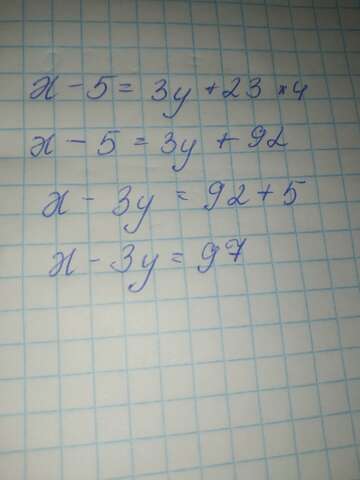 x - 5 = 3y + 23 * 4
x - 5 = 3y + 92
x - 3y = 92 + 5
x - 3y = 97